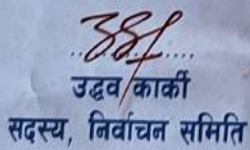 उद्धव कार्की
सदस्य, निर्वाचन समिति